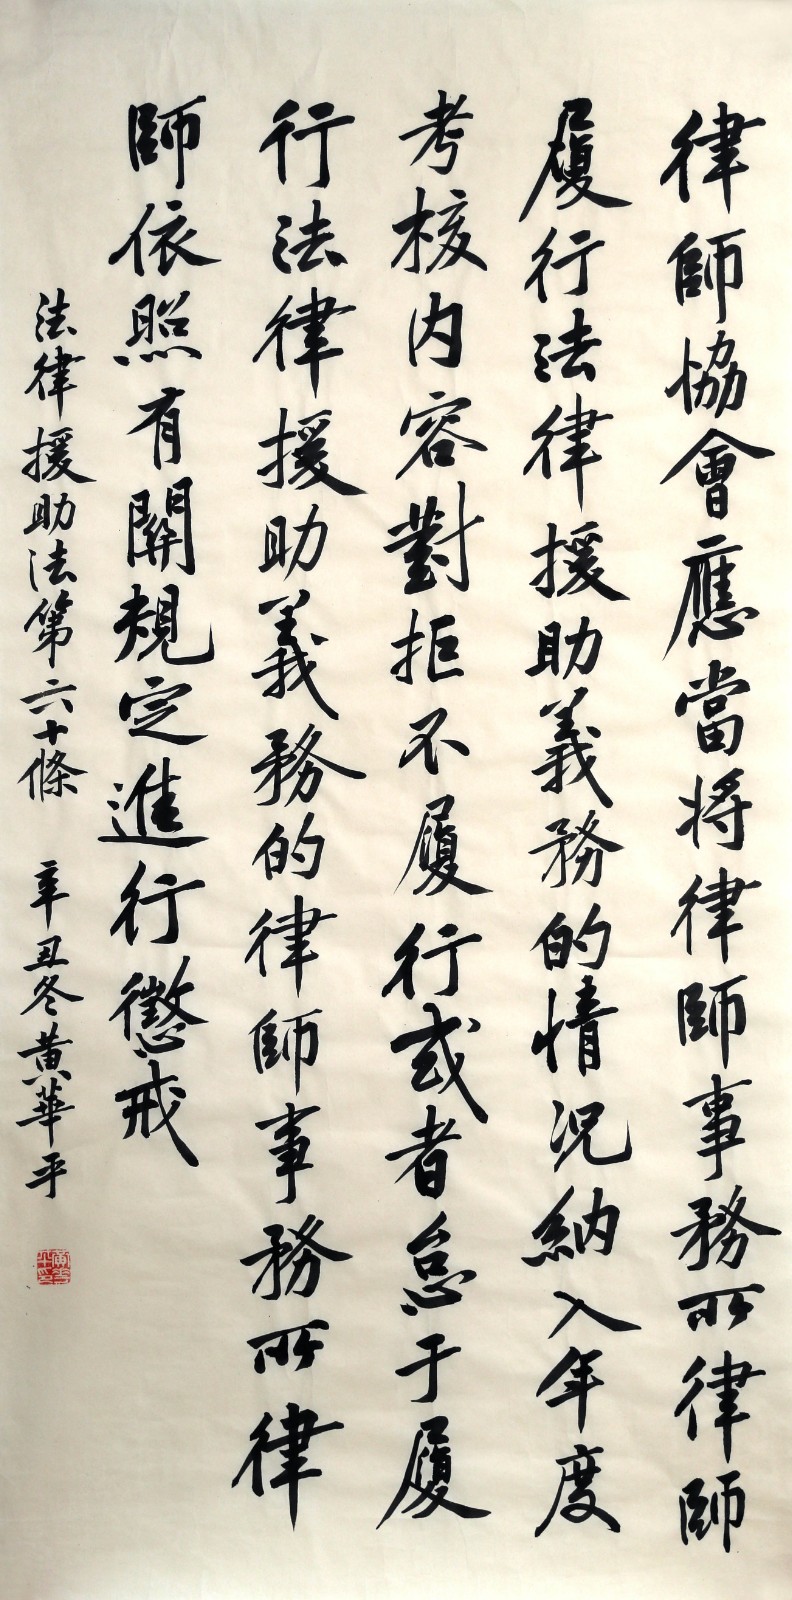 律師協會應當將律師事務所律師
履行法律援助義務的情況納入年度
考核內容對拒不履行或者怠于履
行法律援助義務的律師事務所律
師依照有關規定進行懲戒
法律援助法第六十條 辛丑冬黃華平